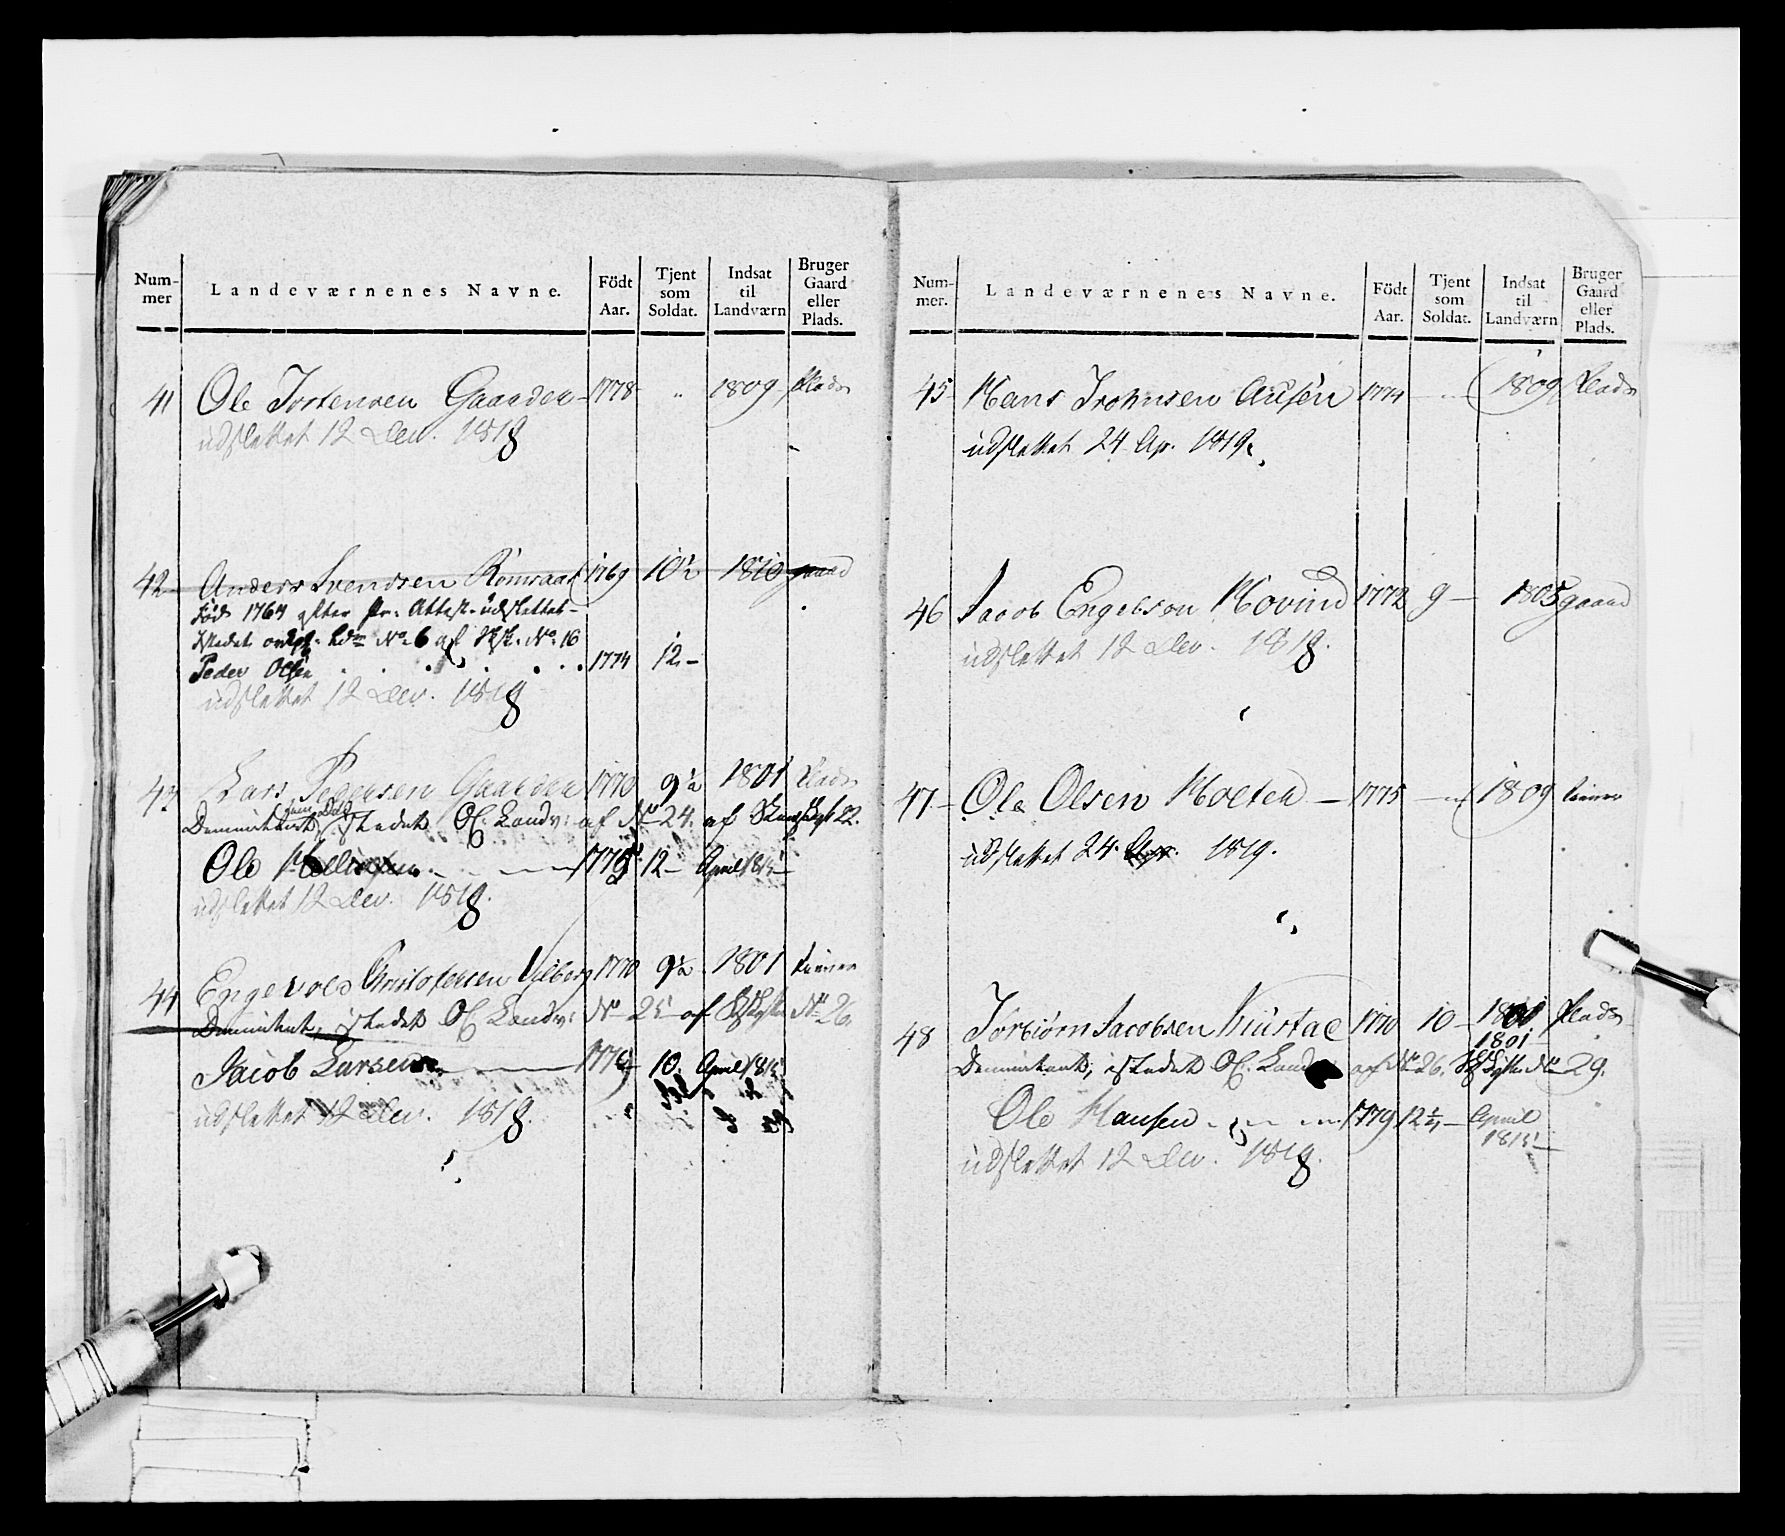 Num-
mer
Landeværnenes Navne.
Födt
Aar.
Tjent
som
Soldat.
Indsat
til
Landværn
Bruger
Gaard
eller
Plads.
41 Ole Tostensen Gaarden 1778 " 1809 Plads
udslettet 12 Dec. 1818
42 Anders Svendsen Römsaas 1769 10½ 1810 gaard
Föd 1764 efter Pr. Attest. udslettet
Istedet No 6 af No 16
Peder Olsen 1774 12
udslettet 12 Dec. 1818
43 Lars Pedersen Gaarden 1770 9½ 1801 Plads
Demitteret istedet Landv: af No 24 af 22.
Ole 1775 12 April 1815
udslettet 12 Dec. 1818.
44 Engevold Christophersen 1770 9½ 1801
Demitteret, istedet Landv: No 25 af No 26.
Jacob Larsen 1779 10. April 1815
udslettet 12 Dec. 1818.
Num-
mer.
Landeværnenes Navne.
Födt
Aar.
Tjent
som
Soldat.
Indsat
til
Landværn
Bruger
Gaard
eller
Plads.
45 Hans Irohnsen 1774 1809 Plads
udslettet 24 Ap. 1819.
46 Jacob Engebson Hovind 1772 9 1805 gaard
udslettet 12 Dec. 1818.
47 Ole Olsen Holten 1775 1809
udslettet 24 Apr. 1819.
48 Torbiörn Jacobsen 1770 10 1801 Plads
1801
Demitteret, istedet Land af No 26. No 29.
Ole Hansen 1779 12 April
1815
udslettet 12 Dec. 1818.